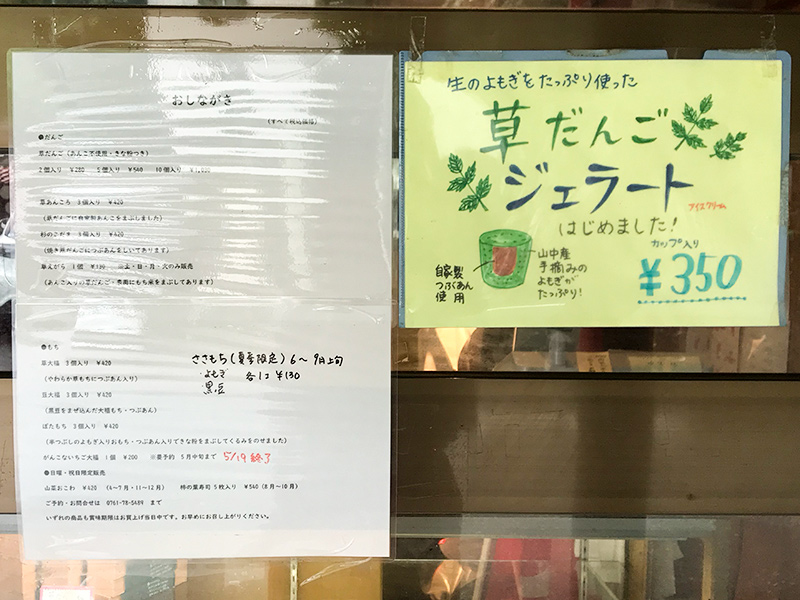 おしながき
(すべて税込価格)
●だんご
草だんご(あんこ不使用・きな粉つき)
2個入り ¥280 5個入り ¥540 10個入り
草あんころ 3個入り ¥420
(草だんごに自家製あんこをまぶしました)
杉のこだま 3個入り ¥420
草えがら 1個 ※土・日・月・火のみ販売
(あんこ入りの草だんご・表面にもち米をまぶしてあります)
●もち
草大福 3個入り ¥420
(やわらか草もちにつぶあん入り)
豆大福 3個入り ¥420
(黒豆をまぜ込んだ大福もち・つぶあん)
ぼたもち 3個入り ¥420
(半つぶしのよもぎ入りおもち・つぶあん入りできな粉をまぶしてくるみをのせました)
がんこないちご大福 1個 ¥200 ※要予約 5月中旬まで 5/19 終了
●日曜・祝日限定販売
山菜おこわ ¥420 (4~7月・11~12月) 柿の葉寿司 5枚入り ¥540 (8月~10月)
ご予約・お問合せは 0761-78-5489 まで
いずれの商品も賞味期限はお買上げ当日中です。お早めにお召し上がりください。
ささもち(夏季限定) 6~9月上旬
・よもぎ 各1コ ¥130
黒豆
生のよもぎをたっぷり使った
草だんご
ジェラート
アイスクリーム
はじめました!
カップ入り
¥350
自家製
つぶあん
使用
山中産
手摘みの
よもぎが
たっぷり!